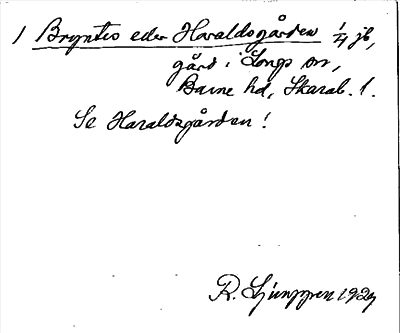 1 Bryntes eller Haraldsgården 1/4 jb,
gård i Longs sn,
Barne hd, Skarab. l.
Se Haraldsgården!
R. Ljunggren 1929